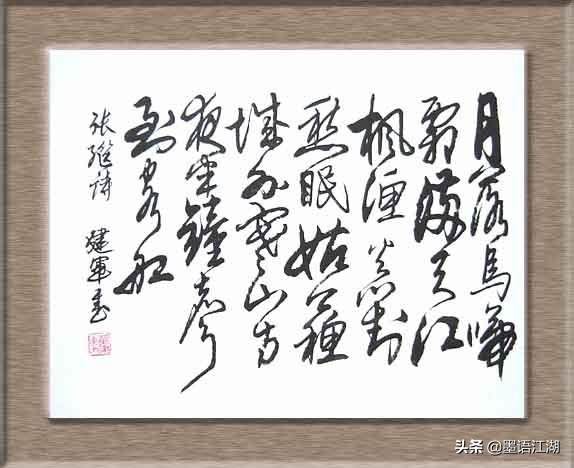 月落烏啼
霜滿天江
楓漁火對
愁眠姑蘇
城外寒山寺
夜半鐘聲
到客船
張繼詩 建軍書
头条 @墨语江湖